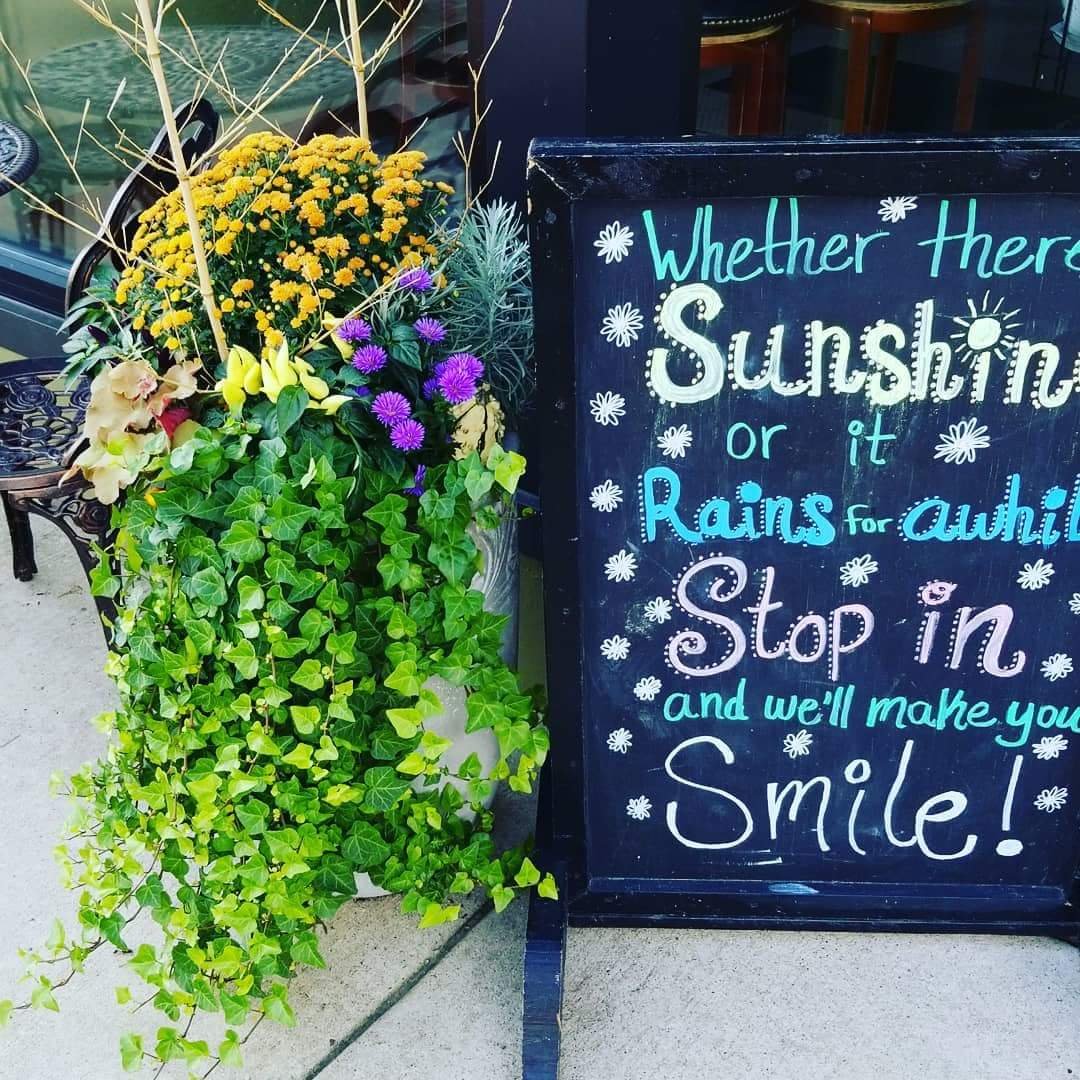 Whether there
Sunshin
or it
Rains for awhil
Stop in
and we'll make you
Smile!